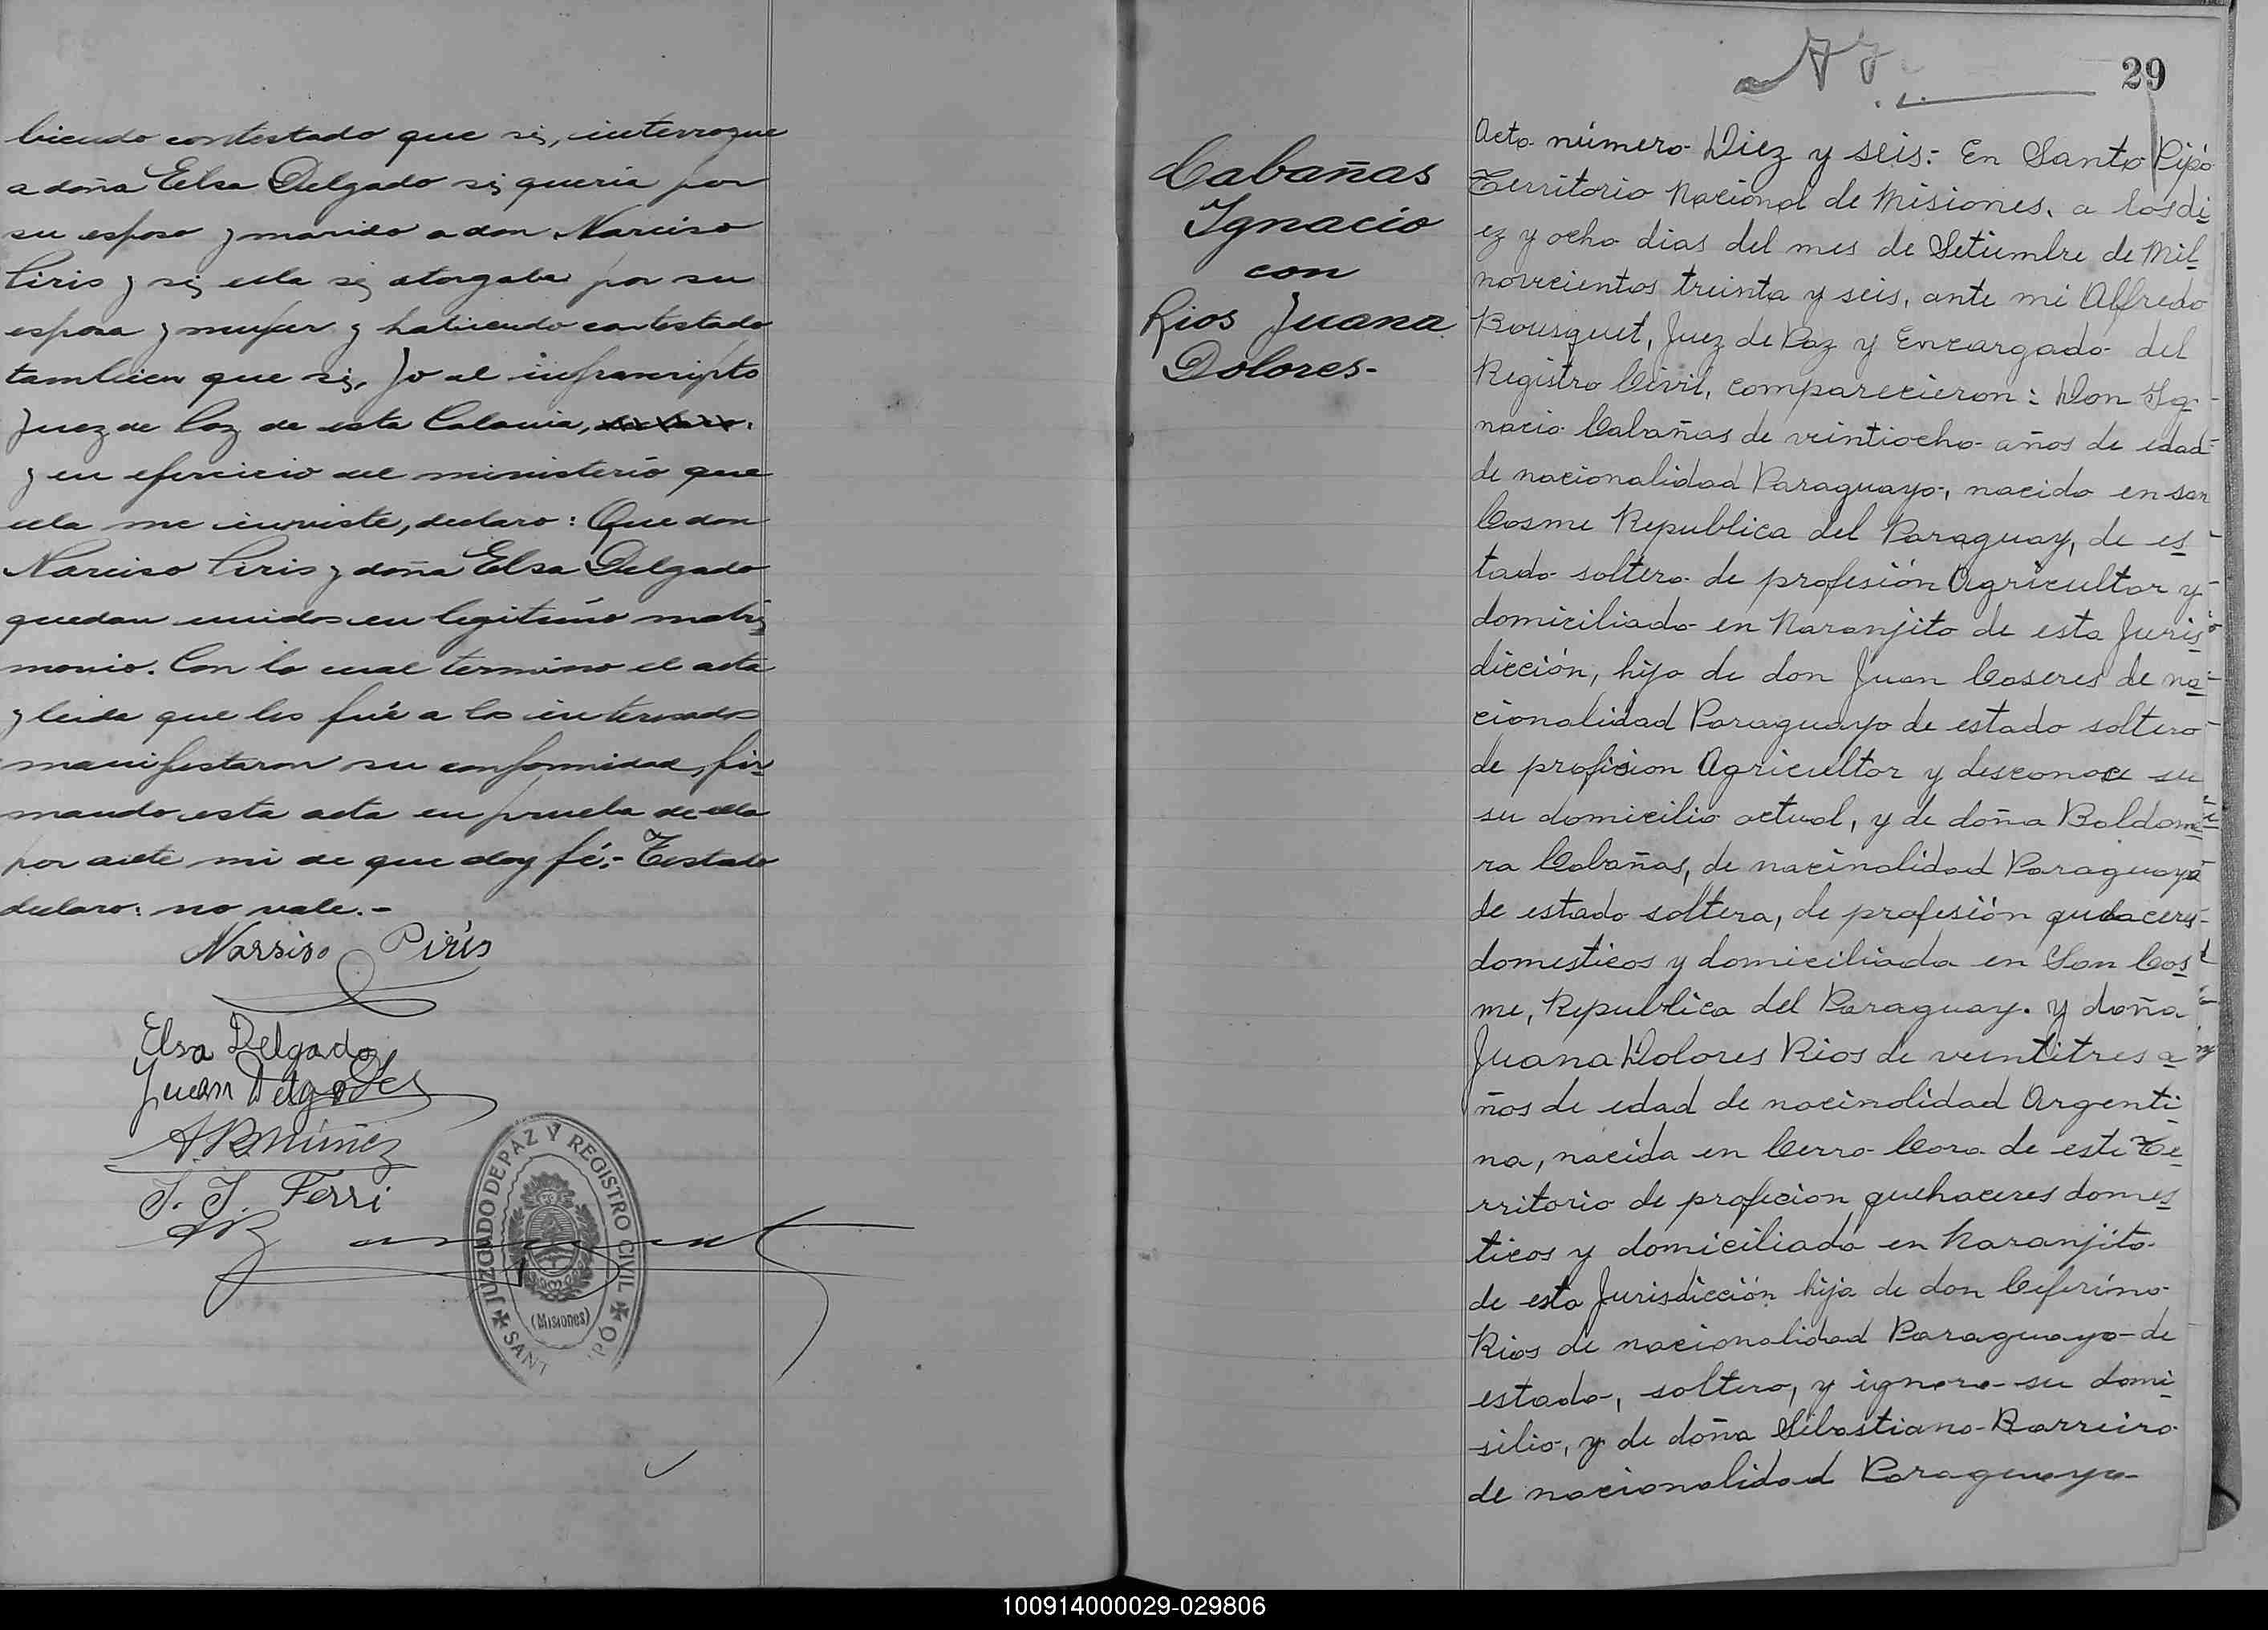 biendo contestado que si, interrogue
a doña Elsa Delgado si queria por
su esposo y marido a don Narciso
Piris y si ella se otorgaba por su
esposa y mujer y habiendo contestado
tambien que si, Yo el infranscripto
Juez de Paz de esta Colonia,
y en ejercicio del ministerio que
ella me inviste, declaro: Que don
Narciso Piris y doña Elsa Delgado
quedan unidos en legitimo matri
monio. Con lo cual termino el acta
y leida que les fué a los interesados
manifestaron su conformidad, fir
mando esta acta en prueba de ello
por ante mi de que doy fé.- Testado
declaro: no vale.-
Narsiso Pirís
Elsa Delgado
Juan Delgado
A. B. Núñez
J. J. Ferri
JUZGADO DE PAZ Y REGISTRO CIVIL
SANT
(Misiones)
29
Cabañas
Ignacio
con
Rios Juana
Dolores-
Acta número Diez y seis:- En Santo Pipó
Territorio Nacional de Misiones, a los di
ez y ocho dias del mes de Setiembre de Mil
novecientos treinta y seis, ante mi Alfredo
Bousquet, Juez de Paz y Encargado del
Registro Civil, comparecieron: Don Ig-
nacio Cabañas de veintiocho años de edad
de nacionalidad Paraguayo, nacido en san
Cosme Republica del Paraguay, de es
tado soltero de profesión Agricultor y
domiciliado en Naranjito de esta Juris
dicción, hijo de don Juan Caseres de na
cionalidad Paraguayo de estado soltero
de profision Agricultor y desconoce su
su domicilio actual, y de doña Baldome
ra Cabañas, de nacinalidad Paraguaya
de estado soltera, de profesión quehaceres
domesticos y domiciliada en San Cos
me, Republica del Paraguay. y doña
Juana Dolores Rios de veintitres a
ños de edad de nacinolidad Argenti
na, nacida en Cerro Cora de este Te
rritorio de profecion quehaceres domes
ticos y domiciliada en Naranjito
de esta Jurisdicción hija de don Ceferino
Rios de nacionalidad Paraguayo de
estado, soltero, y ignora su domi
silio, y de doña Sebastiana Barreiro
de nacionalidad Paraguaya
100914000029-029806